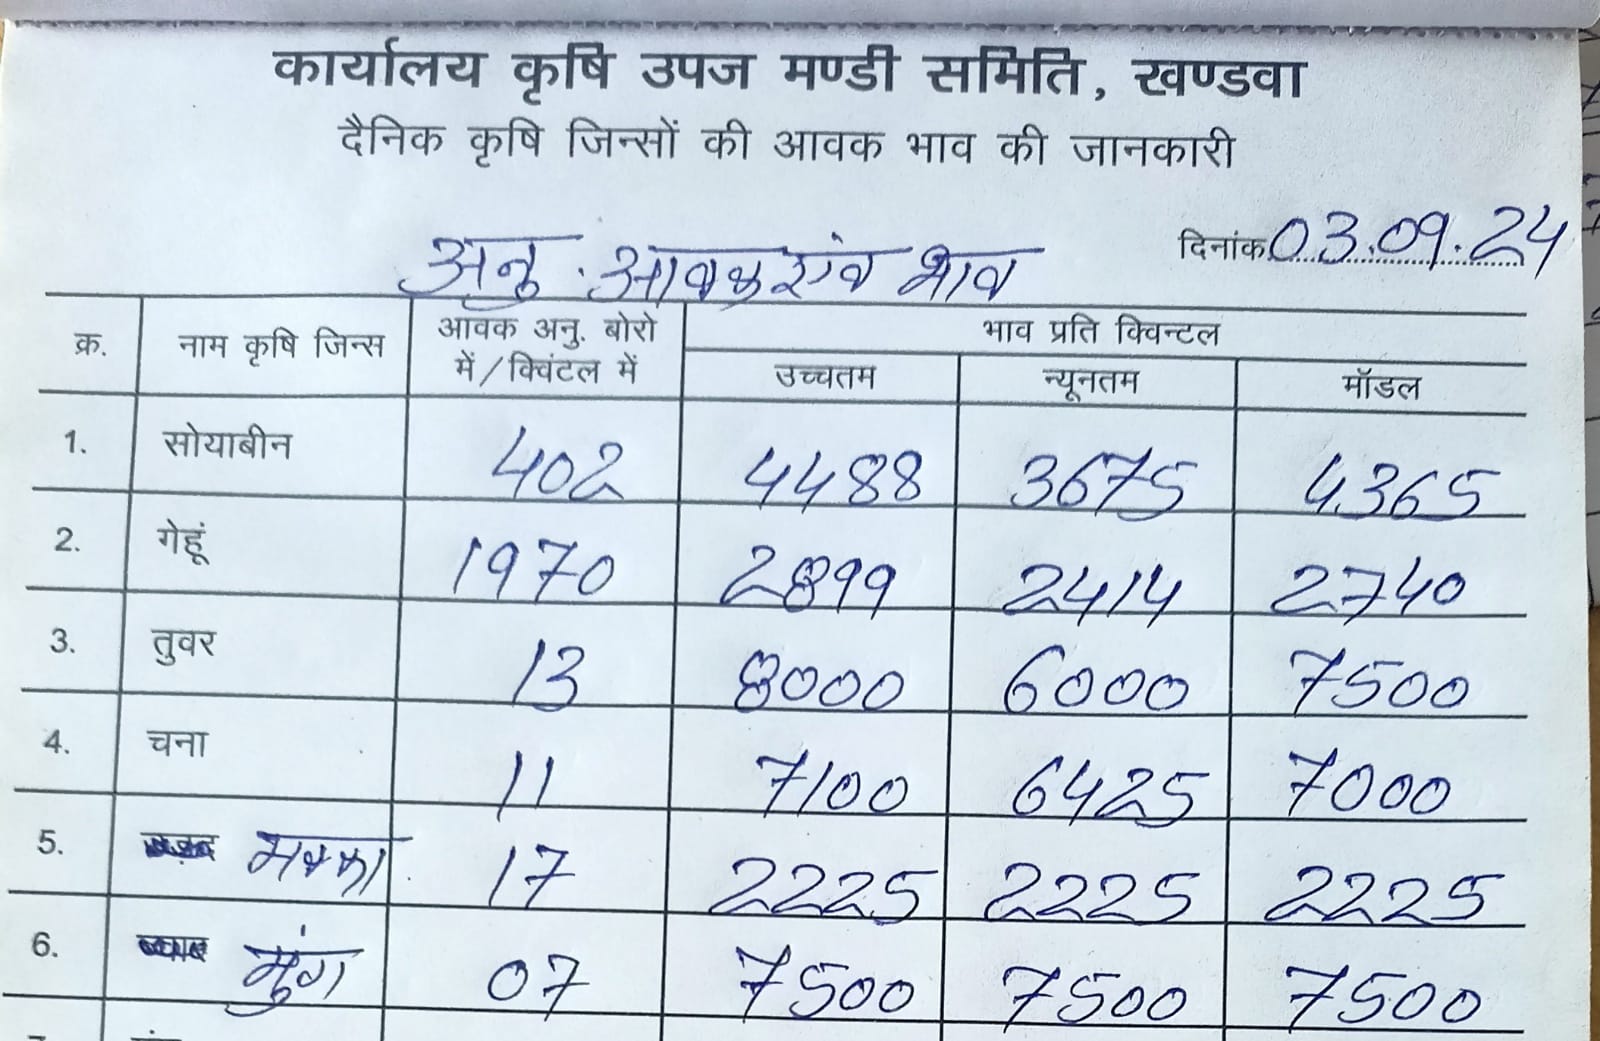 कार्यालय कृषि उपज मण्डी समिति, खण्डवा
दैनिक कृषि जिन्सों की आवक भाव की जानकारी
दिनांक 03.09.24
अनु. आवक एंव भाव
क्र. नाम कृषि जिन्स आवक अनु. बोरो में/क्विंटल में भाव प्रति क्विन्टल
उच्चतम न्यूनतम मॉडल
1. सोयाबीन 402 4488 3675 4365
2. गेहूं 1970 2899 2414 2740
3. तुवर 13 8000 6000 7500
4. चना 11 7100 6425 7000
5. मक्का 17 2225 2225 2225
6. मुंग 07 7500 7500 7500